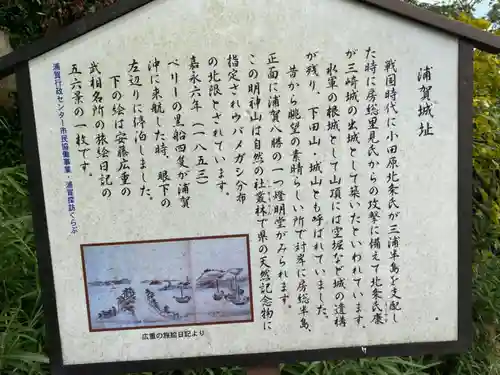 浦賀城址
戦国時代に小田原北条氏が三浦半島を支配し
た時に房総里見氏からの攻撃に備えて北条氏康
が三崎城の出城として築いたといわれています。
水軍の根城として山頂には空堀など城の遺構
が残り、下田山、城山とも呼ばれていました。
昔から眺望の素晴らしい所で対岸に房総半島、
正面に浦賀八勝の一つ燈明堂がみられます。
この明神山は自然の社叢林で県の天然記念物に
指定されウバメガシ分布
の北限とされています。
嘉永六年(一八五三)
ペリーの黒船四隻が浦賀
沖に来航した時、眼下の
左辺りに停泊しました。
下の絵は安藤広重の
武相名所の旅絵日記の
五六景の一枚です。
浦賀行政センター市民協働事業・浦賀探訪くらぶ
広重の旅絵日記より